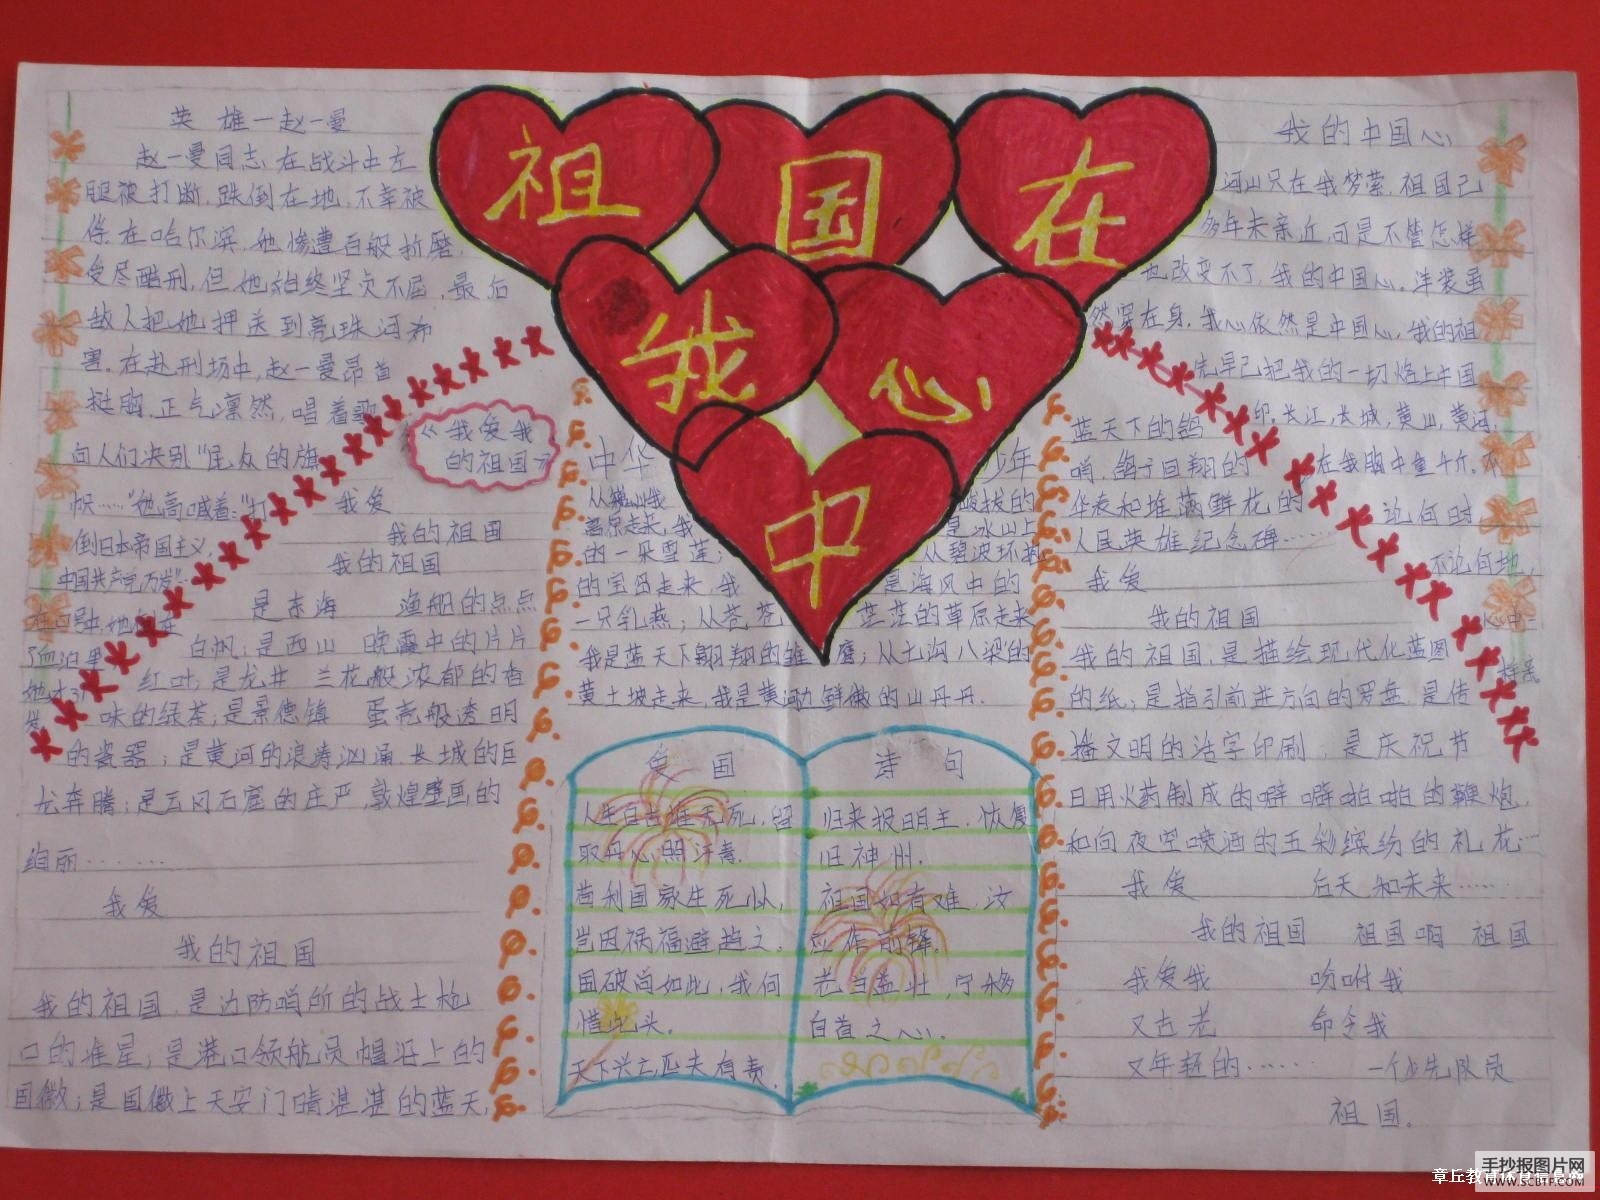 祖国在
我心
中
英雄—赵一曼
赵一曼同志,在战斗中左
腿被打断,跌倒在地,不幸被
俘,在哈尔滨,她惨遭百般折磨,
受尽酷刑,但她始终坚贞不屈,最后
敌人把她押送到
害。在赴刑场中,赵一曼昂首
挺胸,正气凛然,唱着歌
向人们决别“民众的旗
帜……”她高喊着:“打
倒日本帝国主义,
中国共产党万岁”
《我爱我
的祖国》
我爱
我的祖国
我的祖国
是东海 渔船的点点
白帆;是西山 晚霞中的片片
红叶;是龙井 兰花般浓郁的香
味的绿茶;是景德镇 蛋壳般透明
的瓷器;是黄河的浪涛汹涌,长城的巨
龙奔腾;是云冈石窟的庄严,敦煌壁画的
绚丽……
我爱
我的祖国
我的祖国,是边防哨所的战士枪
口的准星;是港口领航员帽沿上的
国徽;是国徽上天安门晴湛湛的蓝天,
蓝天下的鸽
哨,鸽子回翔的
华表和堆满鲜花的
人民英雄纪念碑……
我爱
我的祖国
我的祖国,是描绘现代化蓝图
的纸;是指引前进方向的罗盘,是传
播文明的活字印刷,是庆祝节
日用火药制成的噼噼啪啪的鞭炮,
和向夜空喷洒的五彩缤纷的礼花…
我爱 后天和未来……
我的祖国 祖国啊 祖国
我爱我 吩咐我
又古老 命令我
又年轻的…… 一个少先队员
祖国。
中华 少年
的一朵雪莲;从碧波环抱
的宝岛走来,我是海风中的
一只乳燕;从苍苍茫茫的草原走来
我是蓝天下翱翔的雏鹰;从七沟八梁的
黄土坡走来,我是黄河边鲜嫩的山丹丹.
爱国 诗句
人生自古谁无死,留
取丹心照汗青.
苟利国家生死以,
岂因祸福避趋之.
国破尚如此,我何
惜此头.
天下兴亡,匹夫有责.
归来报明主,恢复
旧神州.
祖国如有难,汝
应作前锋.
老当益壮,宁移
白首之心.
我的中国心
河山只在我梦萦,祖国已
多年未亲近,可是不管怎样
也改变不了,我的中国心。洋装虽
然穿在身,我心依然是中国心,我的祖
先早已把我的一切烙上中国
印,长江,长城,黄山,黄河,
在我胸中重千斤,不
论何时
不论何地,
心中一
样亲
手抄报图片网
WWW.SCBTP.COM
章丘教育体育信息网